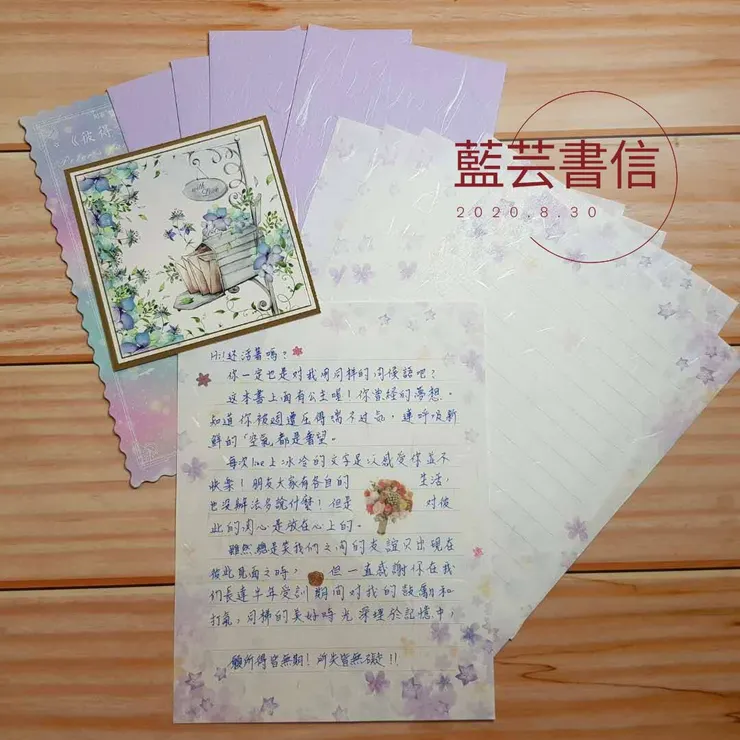 藍芸書信
2020.8.30
《彼得
with love
Hi!還活著嗎?
你一定也是對我用同樣的問候語吧?
這本書上面有公主喔!你曾經的夢想。
知道你被週遭壓得喘不過氣,連呼吸新
鮮的空氣都是奢望。
每次line上冰冷的文字是次感受你並不
快樂!朋友大家有各自的 生活,
也沒辦法多說什麼!但是 對彼
此的關心是放在心上的。
雖然總是笑我們之間的友誼只出現在
彼此見面之時, 但一直感謝你在我
們長達半年受訓期間對我的鼓勵和
打氣,同梯的美好時光深埋於記憶中,
願所得皆無期!所失皆無礙!!